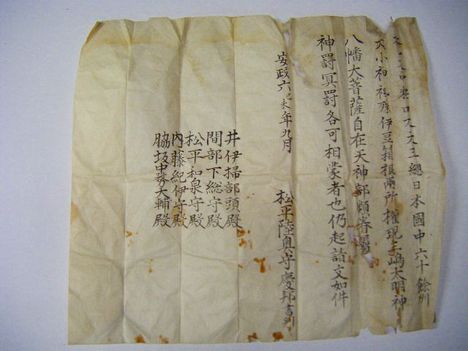 總日本國中六十餘州
大小神祇殊伊豆箱根兩所権現三嶋大明神
八幡大菩薩自在天神部類眷屬
神罰冥罰各可相蒙者也仍起請文如件
安政六未年九月
松平陸奥守慶邦書判
井伊掃部頭殿
間部下総守殿
松平和泉守殿
内藤紀伊守殿
脇坂中務大輔殿